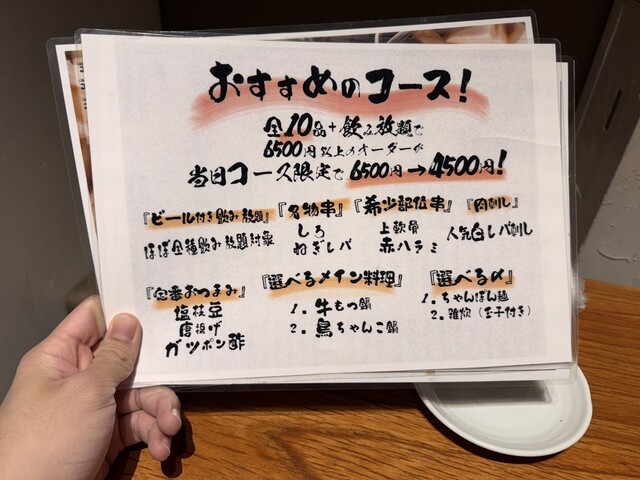 おすすめのコース!
全10品+飲み放題で
6500円以上のオーダーが
当日コース限定で 6500円→4500円!
『ビール付き飲み放題』
ほぼ全種飲み放題対象
『名物串』
しろ
ねぎレバ
『希少部位串』
上軟骨
赤ハラミ
『肉刺し』
人気白レバ刺し
『定番おつまみ』
塩枝豆
唐揚げ
ガツポン酢
『選べるメイン料理』
1. 牛もつ鍋
2. 鳥ちゃんこ鍋
『選べる〆』
1. ちゃんぽん麺
2. 雑炊(玉子付き)